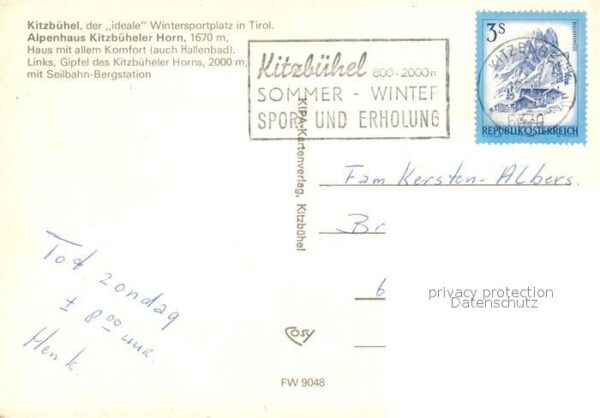 Kitzbühel, der „ideale" Wintersportplatz in Tirol.
Alpenhaus Kitzbüheler Horn, 1670 m,
Haus mit allem Komfort (auch Hallenbad).
Links, Gipfel des Kitzbüheler Horns, 2000 m,
mit Seilbahn-Bergstation
Kitzbühel 800-2000m
SOMMER - WINTER
SPORT UND ERHOLUNG
3S
REPUBLIK ÖSTERREICH
KIPA-Kartenverlag, Kitzbühel
Fam Kersten-Albers.
Br
6
privacy protection
Datenschutz
Tot zondag
± 8.00 uur.
Henk.
cosy
FW 9048